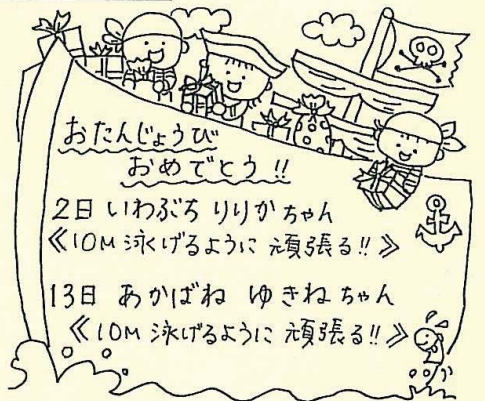 おたんじょうび
おめでとう!!
2日 いわぶち りりか ちゃん
《10M 泳げるように 頑張る!!》
13日 あかばね ゆきね ちゃん
《10M 泳げるように 頑張る!!》